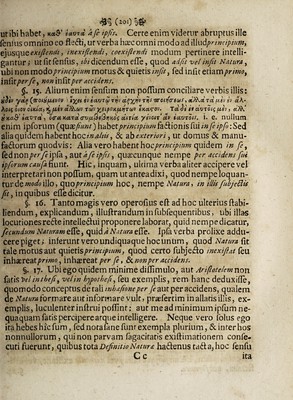 (201)
ut ibi habet, καθ' ἑαυτὰ à se ipsis. Certe enim videtur abruptus ille
sensus omnino esse & flecti, ut verba hæc omni modo ad illud principium,
ejusque existendi, inexistendi, coexistendi modum pertinere intelli-
gantur; ut sit sensus, ibi dicendum esse, quod adsit vel insit Natura,
ubi non modo principium motus & quietis insit, sed insit etiam primo,
insit per se, non insit per accidens.
§. 15. Alium enim sensum non possum conciliare verbis illis:
i. e. nullum
enim ipsorum (quæ fiunt) habet principium factionis suæ in se ipsis: Sed
alia quidem habent hoc in aliis, & ab exteriori, ut domus & manu-
factorum quodvis: Alia vero habent hoc principium quidem in se,
sed non per se ipsa, aut à se ipsis, quæcunque nempe per accidens sui
ipsorum causæ fiunt. Hic, inquam, ultima verba aliter accipere vel
interpretari non possum, quam ut ante dixi, quod nempe loquan-
tur de modo illo, quo principium hoc, nempe Natura, in illis subjectis
sit, in quibus esse dicitur.
§. 16. Tanto magis vero operosus est ad hoc ulterius stabi-
liendum, explicandum, illustrandum in subsequentibus, ubi illas
locutiones recte intellectui proponere laborat, quid nempe dicatur,
secundum Naturam esse, quid à Natura esse. Ipsa verba prolixe addu-
cere piget: inferunt vero undiquaque hoc unum, quod Natura sit
tale motus aut quietis principium, quod certo subjecto inexistat seu
inhæreat primo, inhæreat per se, & non per accidens.
§. 17. Ubi ego quidem minime dissimulo, aut Aristotelem non
satis vel in thesi, vel in hypothesi, seu exemplis, rem hanc deduxisse,
quomodo conceptus de tali inhæsione per se aut per accidens, qualem
de Natura formare aut informare vult, præsertim in allatis illis, ex-
emplis, luculenter instrui possint: aut me ad minimum ipsum ne-
quaquam satis percipere atque intelligere. Neque vero solus ego
ita hebes hîc sum, sed nota sane sunt exempla plurium, & inter hos
nonnullorum, qui non parvam sagacitatis existimationem conse-
cuti fuerunt, quibus tota Definitio Naturæ hactenus tacta, hoc sensu
Cc
ita